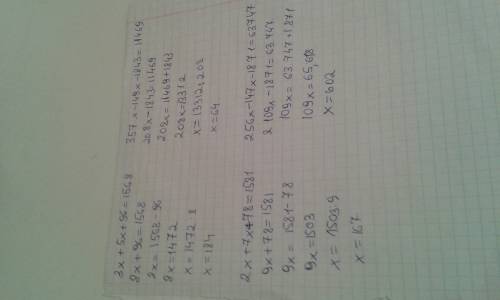 3x + 5x + 96 = 1568
8x + 96 = 1568
8x = 1568 - 96
8x = 1472
x = 1472 : 8
x = 184
357x - 149x - 1843 = 11469
208x - 1843 = 11469
208x = 11469 + 1843
208x = 13312
x = 13312 : 208
x = 64
2x + 7x + 78 = 1581
9x + 78 = 1581
9x = 1581 - 78
9x = 1503
x = 1503 : 9
x = 167
256x - 147x - 1871 = 63747
109x - 1871 = 63.747
109x = 63.747 + 1871
109x = 65,618
x = 602